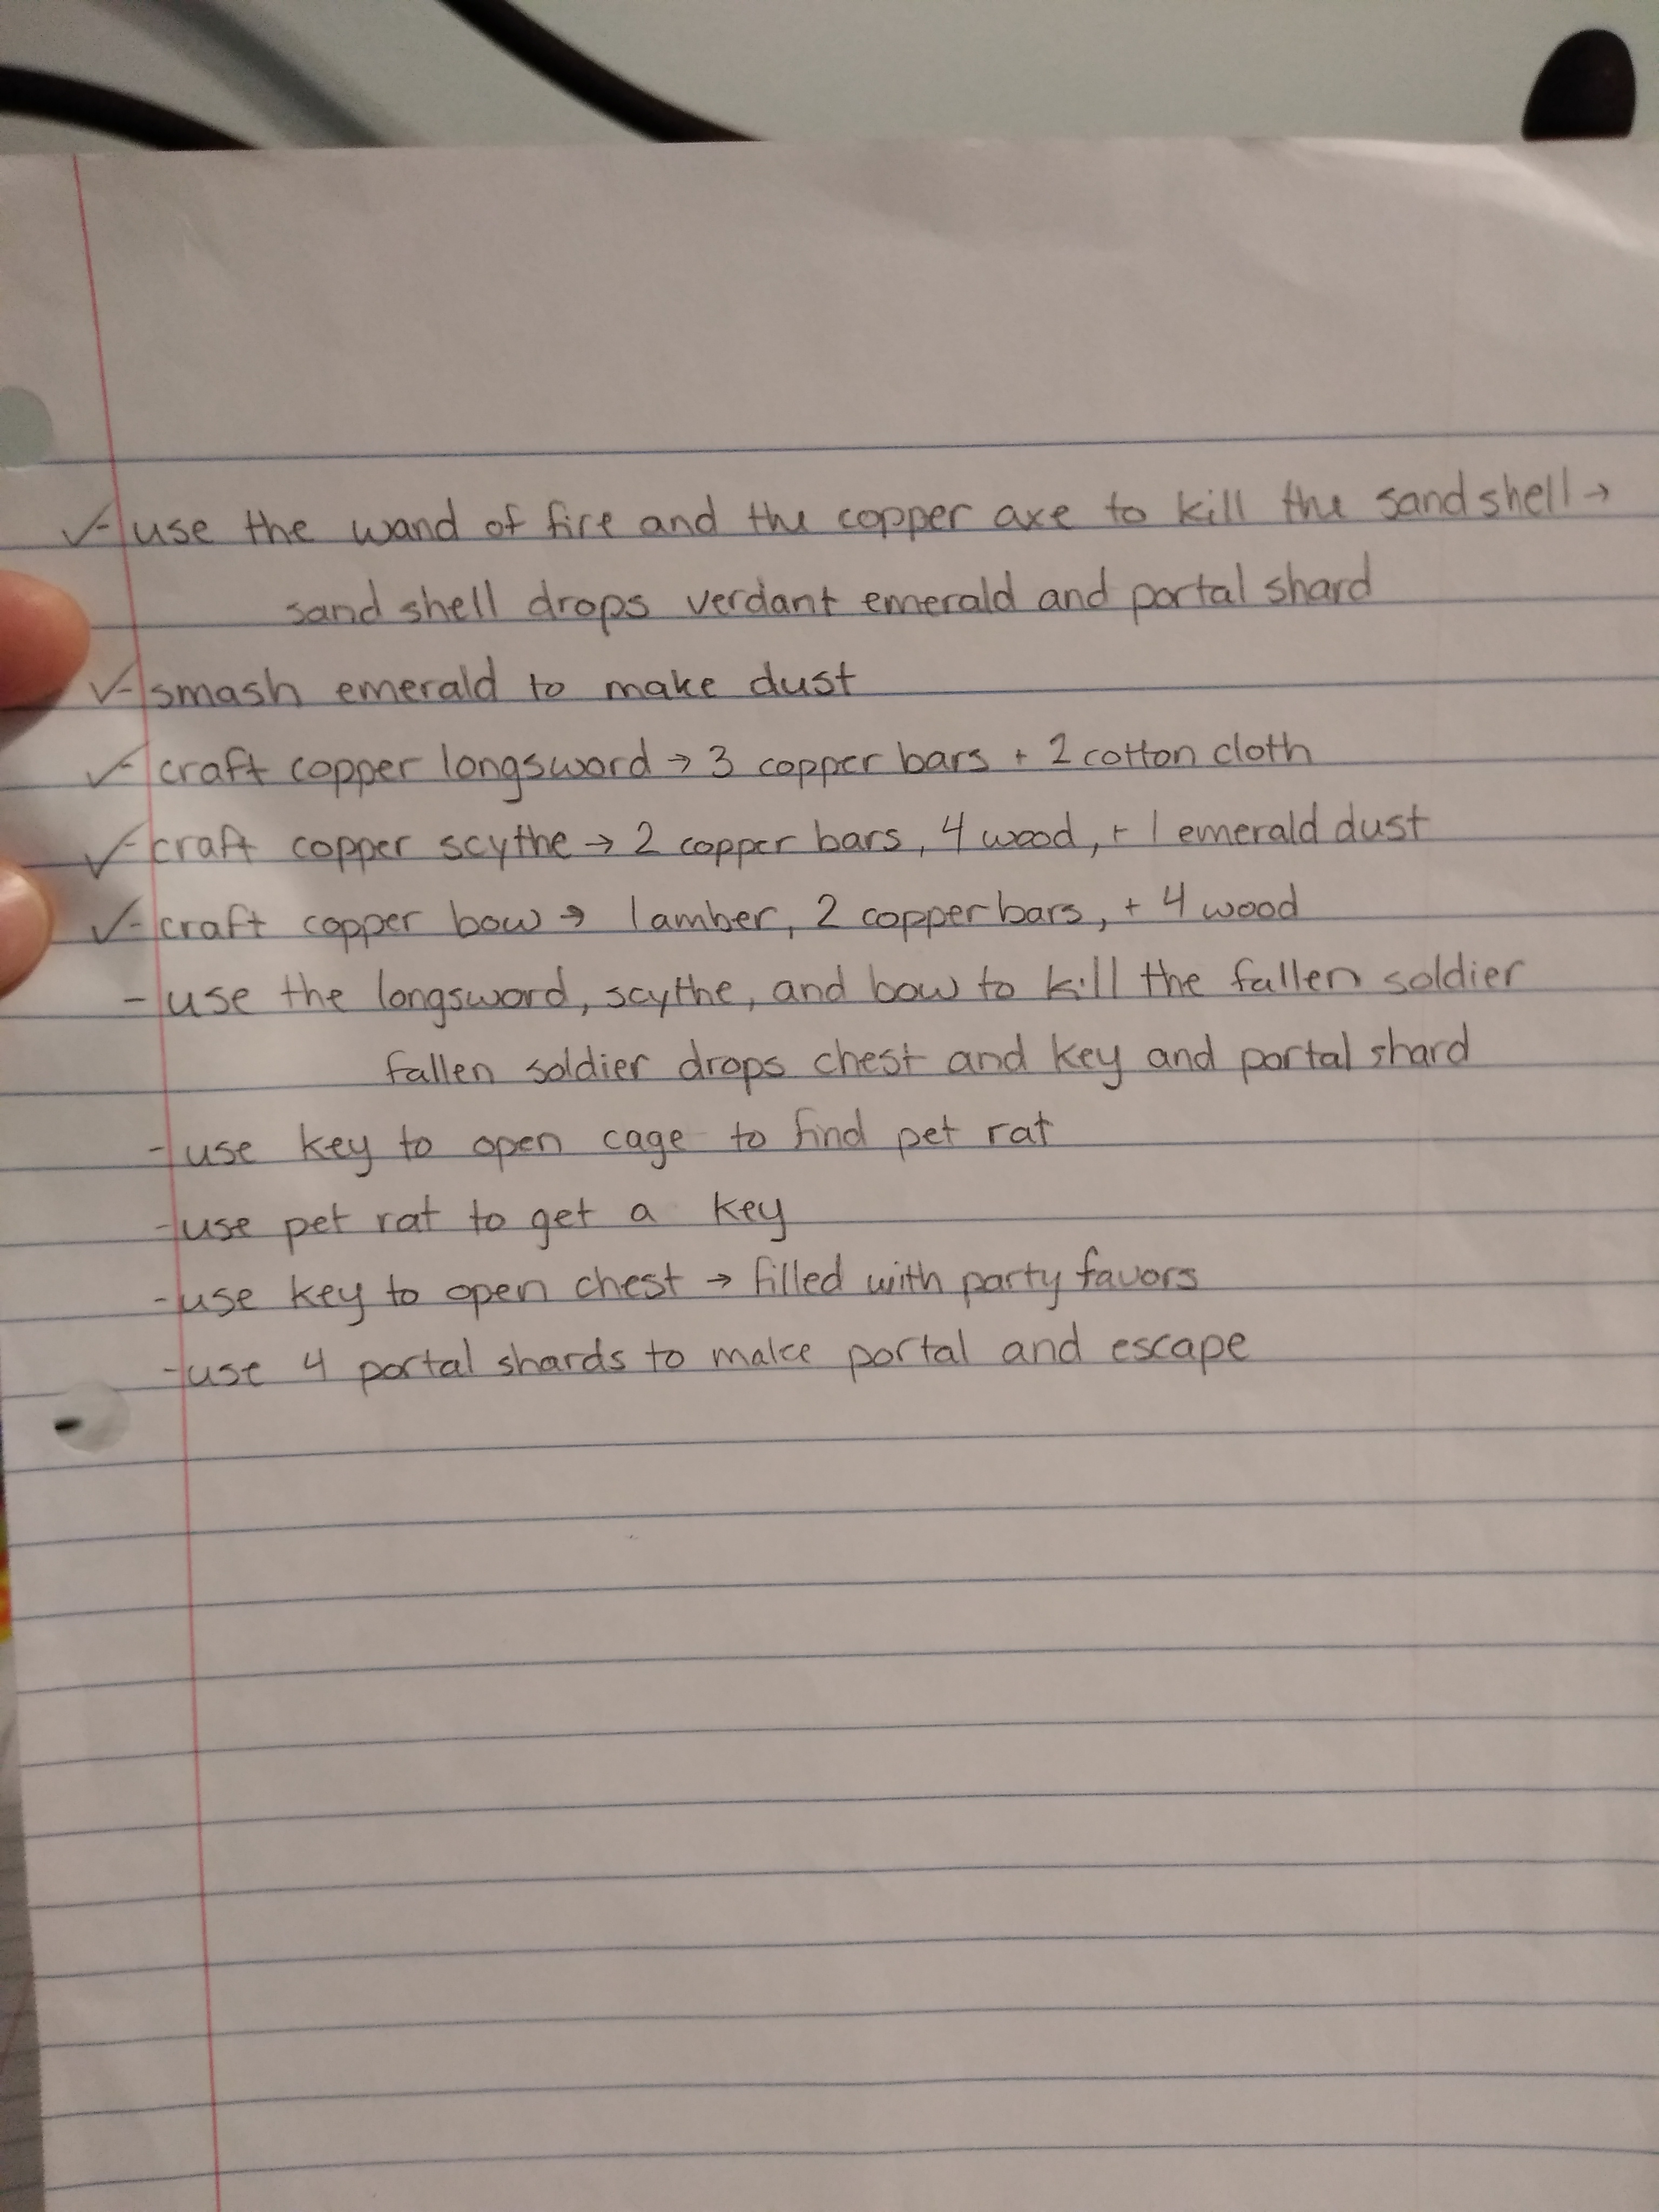 ✓- use the wand of fire and the copper axe to kill the sand shell →
sand shell drops verdant emerald and portal shard
✓- smash emerald to make dust
✓- craft copper longsword → 3 copper bars + 2 cotton cloth
✓- craft copper scythe → 2 copper bars, 4 wood, + 1 emerald dust
✓- craft copper bow → 1 amber, 2 copper bars, + 4 wood
- use the longsword, scythe, and bow to kill the fallen soldier
fallen soldier drops chest and key and portal shard
- use key to open cage to find pet rat
- use pet rat to get a key
- use key to open chest → filled with party favors
- use 4 portal shards to make portal and escape